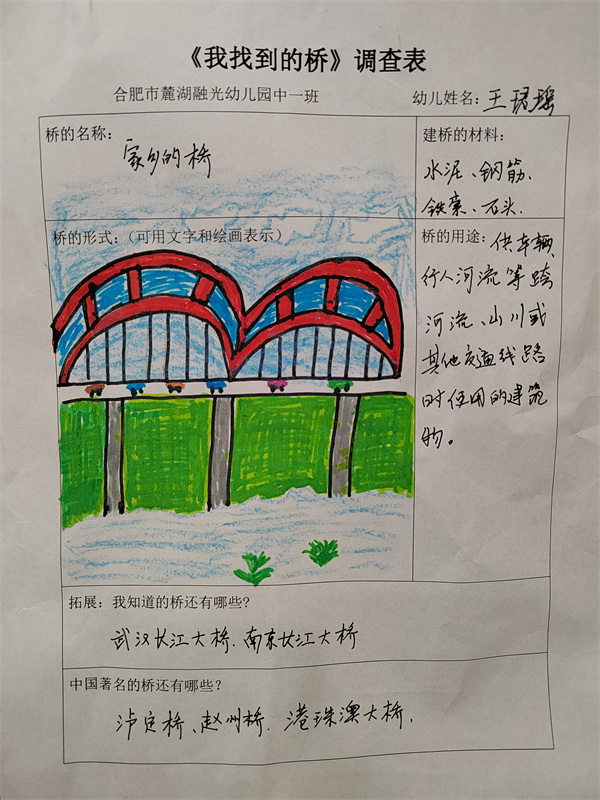 《我找到的桥》调查表
合肥市麓湖融光幼儿园中一班 幼儿姓名：王珺瑶
桥的名称：
家乡的桥
建桥的材料：
水泥、钢筋、
铁索、石头.
桥的形式：（可用文字和绘画表示）
桥的用途：供车辆
行人河流等跨
河流、山川或
其他交通线路
时使用的建筑
物。
拓展：我知道的桥还有哪些?
武汉长江大桥.南京长江大桥
中国著名的桥还有哪些?
泸定桥、赵州桥.港珠澳大桥.